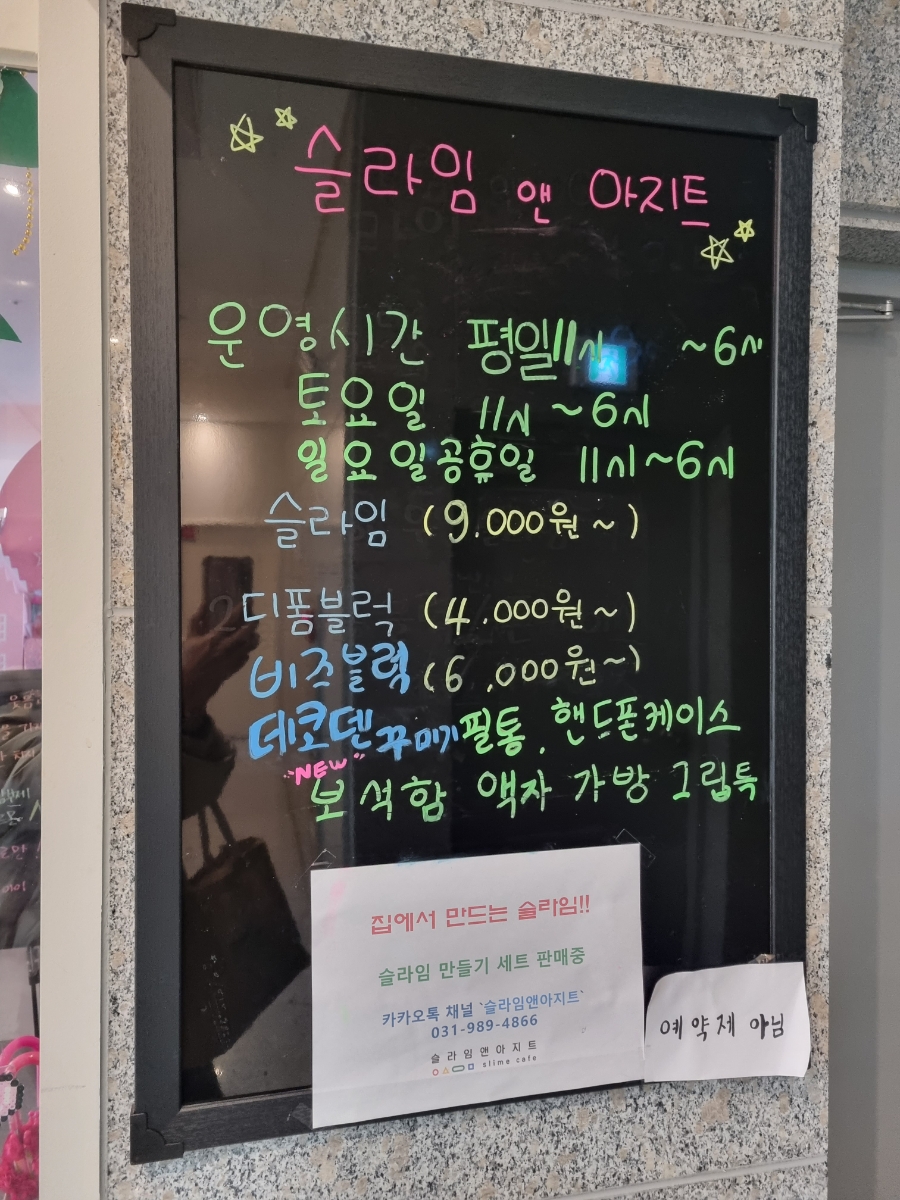 슬라임 앤 아지트
운영시간 평일11시 ~6시
토요일 11시~6시
일요일공휴일 11시~6시
슬라임 (9.000원~)
디폼블럭 (4.000원~)
비즈블럭 (6,000원~)
데코덴꾸미기필통, 핸드폰케이스
"NEW"
보석함 액자 가방 그립톡
집에서 만드는 슬라임!!
슬라임 만들기 세트 판매중
카카오톡 채널 `슬라임앤아지트`
031-989-4866
슬라임앤아지트
slime cafe
예약제 아님